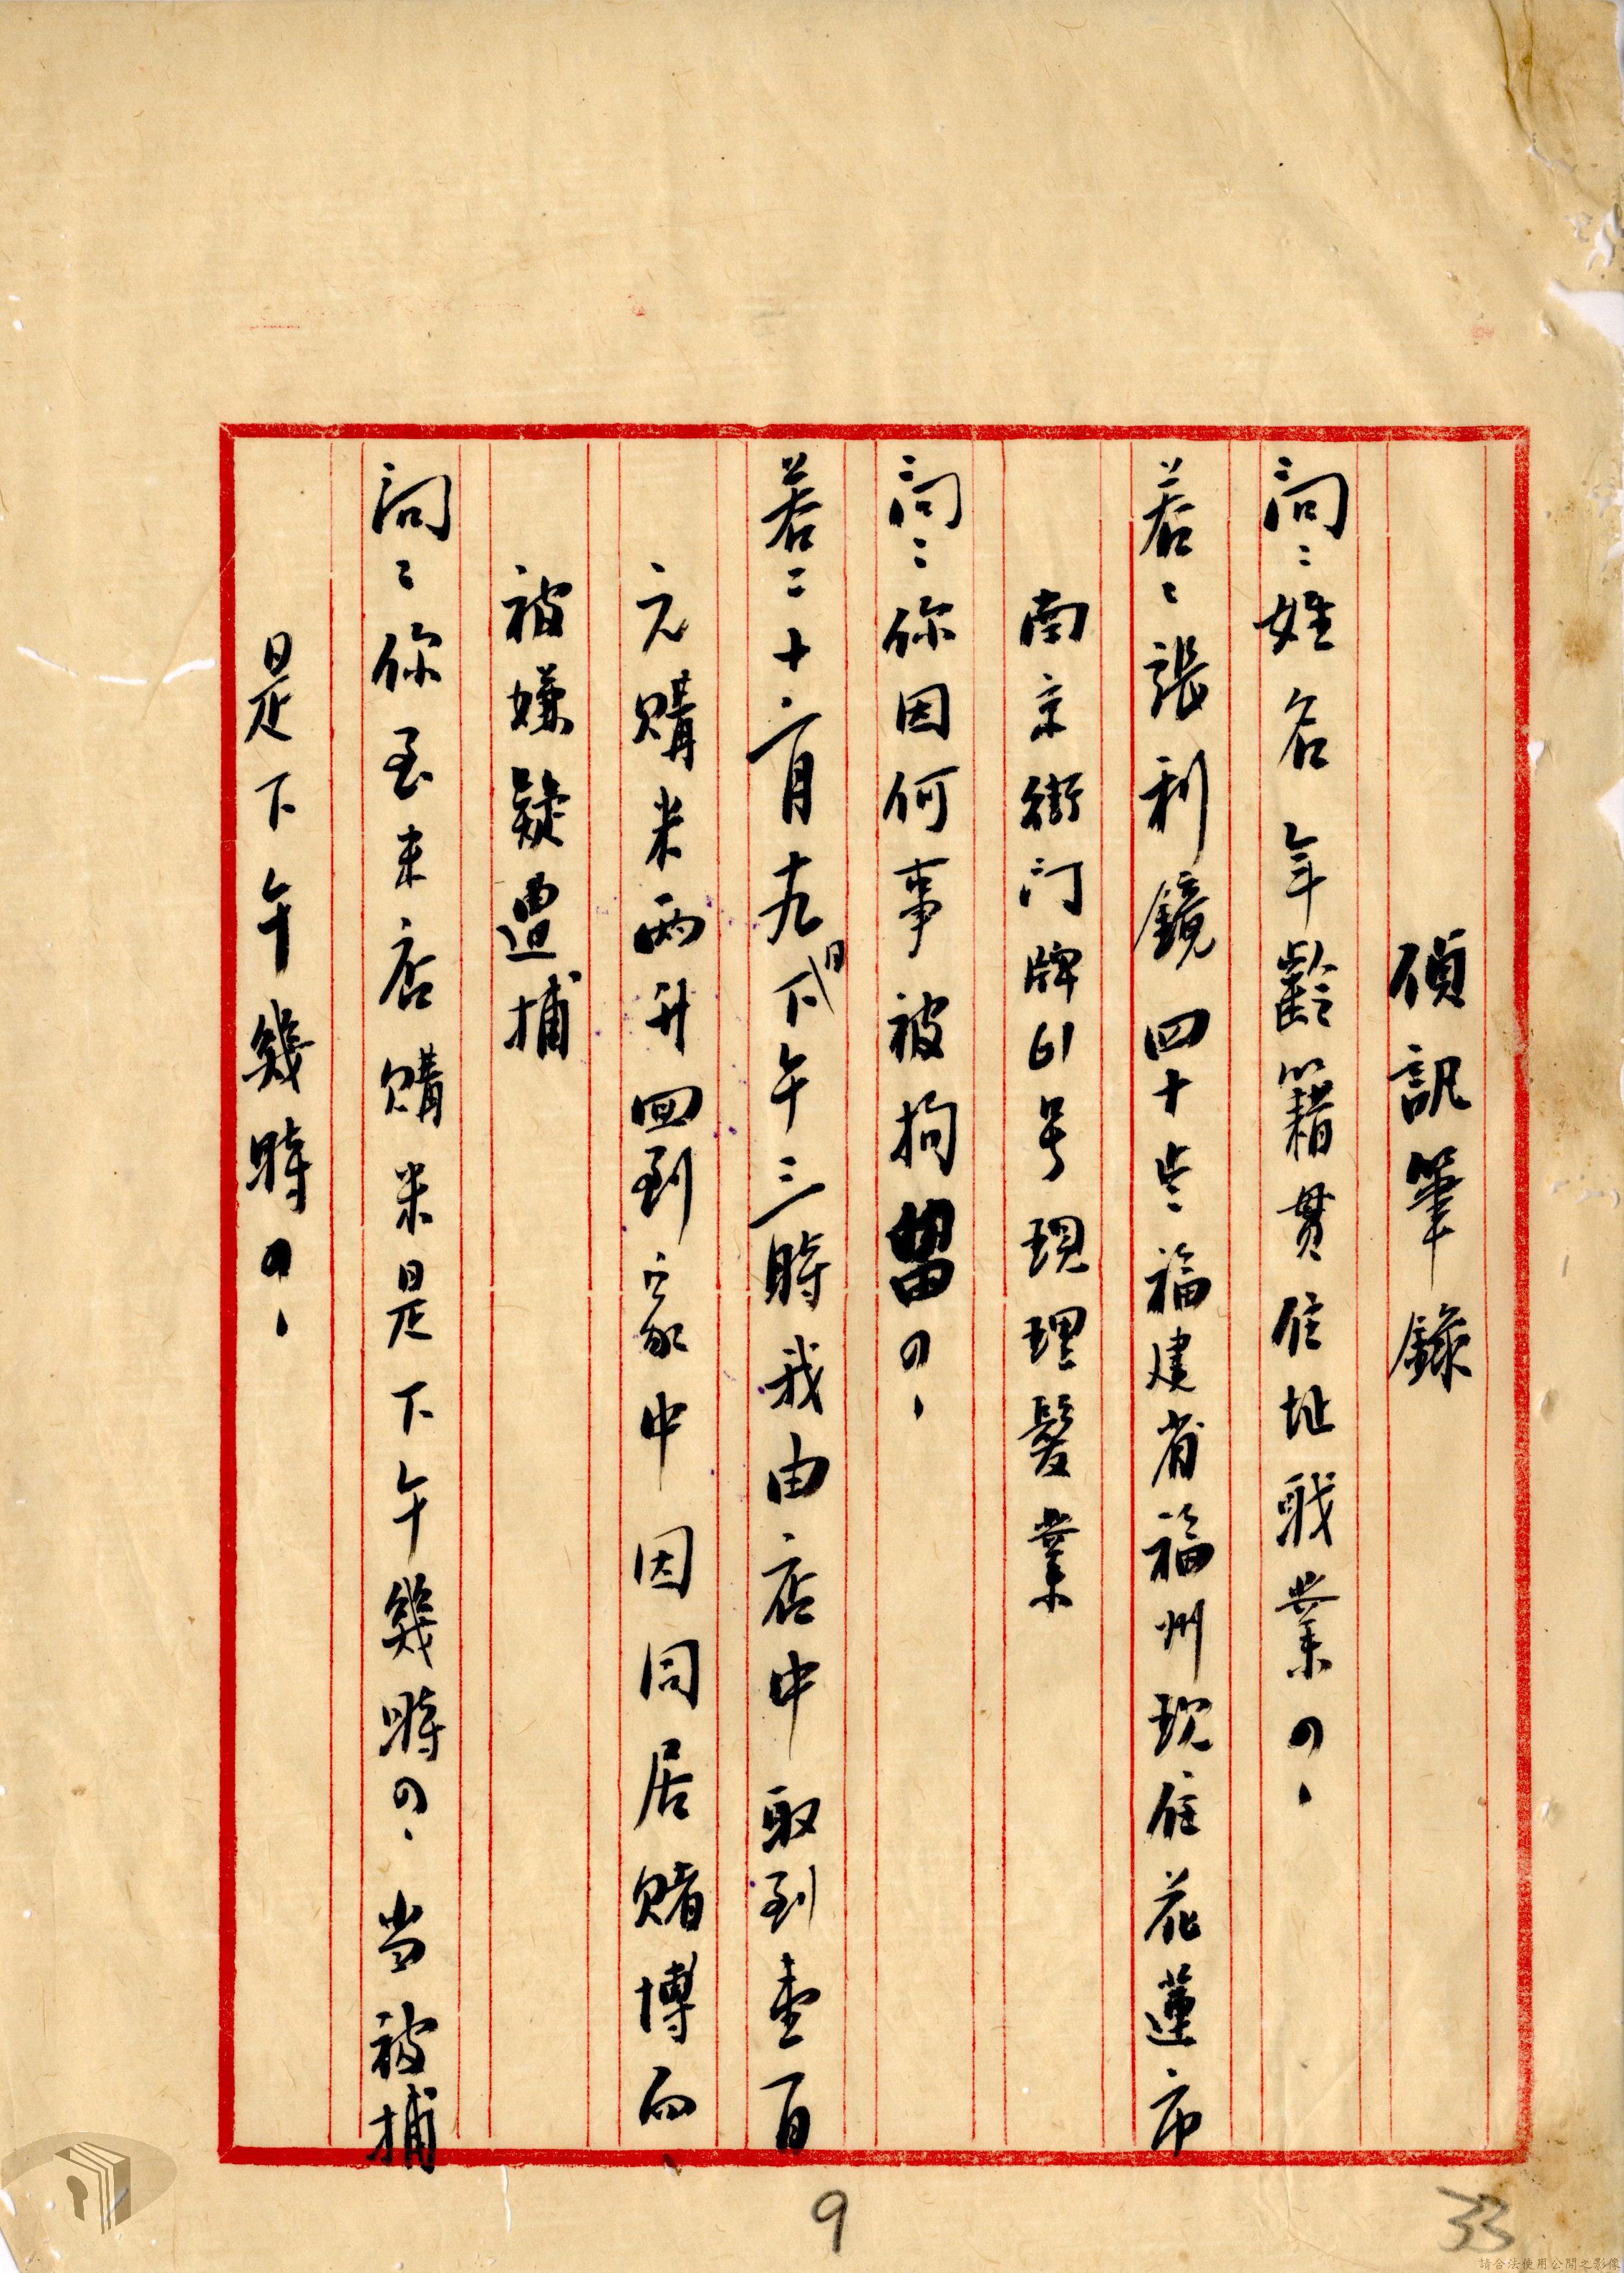 偵訊筆錄
問：姓名年齡籍貫住址职業？
荅：張利鏡四十岁福建省福州现住花蓮市
南京街门牌61号現理髮業
問：你因何事被拘留？
荅：十二月九日下午三時我由店中取到壹百
元購米兩升回到家中因同居賭博而
被嫌疑遭捕
問：你至末店購米是下午幾時？当被捕
是下午幾時？
9
33
請合法使用公開之影像